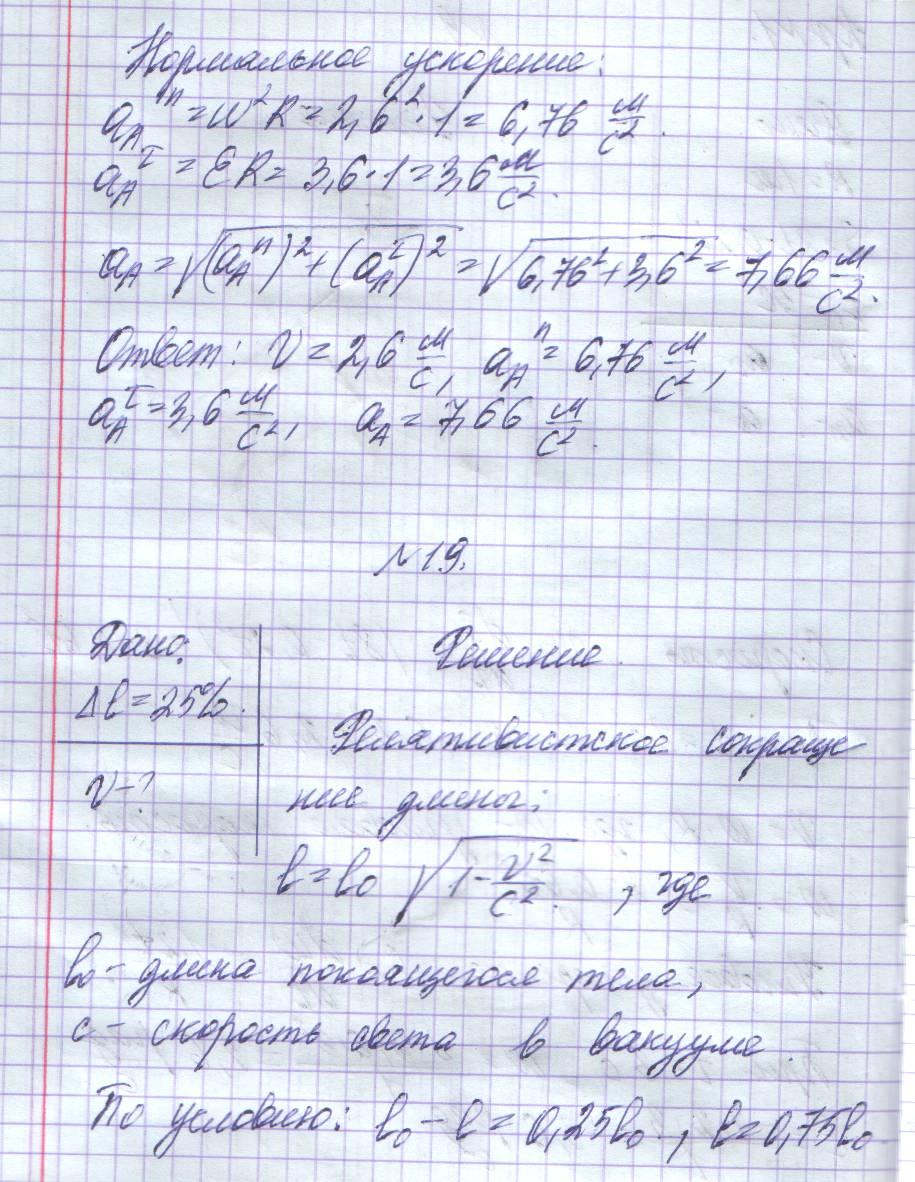 Нормальное ускорение:
a_A^n = ω²R = 2,6²·1 = 6,76 м/с².
a_A^τ = ԐR = 3,6·1 = 3,6 м/с².
a_A = √((a_A^n)² + (a_A^τ)²) = √(6,76² + 3,6²) = 7,66 м/с².
Ответ: v = 2,6 м/с, a_A^n = 6,76 м/с²,
a_A^τ = 3,6 м/с², a_A = 7,66 м/с².
№19.
Дано: Решение.
Δl = 25%.
Релятивистское сокраще
v-? ние длины:
l = l₀ √(1 - v²/c²), где
l₀ - длина покоящегося тела,
c - скорость света в вакууме.
По условию: l₀ - l = 0,25l₀; l = 0,75l₀